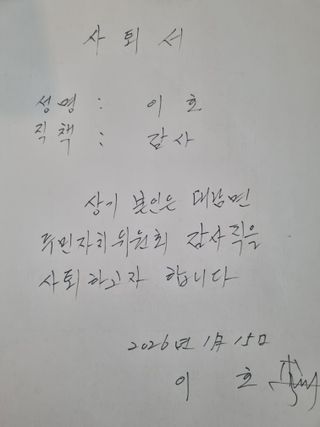 사퇴서
성명 : 이호
직책 : 감사
상기 본인은 대남면
주민자치위원회 감사직을
사퇴하고자 합니다
2026년 1月 15日
이 호